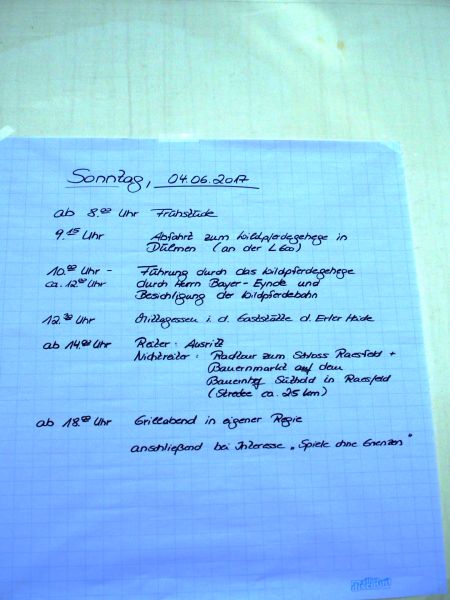 Sonntag, 04.06.2017
ab 8.00 Uhr Frühstück
9.15 Uhr Abfahrt zum Wildpferdegehege in
Dülmen (an der L600)
10.00 Uhr - Führung durch das Wildpferdegehege
ca. 12.00 Uhr durch Herrn Bayer-Eynck und
Besichtigung der Wildpferdebahn
12.30 Uhr Mittagessen i. d. Gaststätte d. Erler Heide
ab 14.00 Uhr Reiter: Ausritt
Nichtreiter: Radtour zum Schloss Raesfeld +
Bauernmarkt auf dem
Bauernhof Süthold in Raesfeld
(Strecke ca. 25 km)
ab 18.00 Uhr Grillabend in eigener Regie
anschließend bei Interesse „Spiele ohne Grenzen"